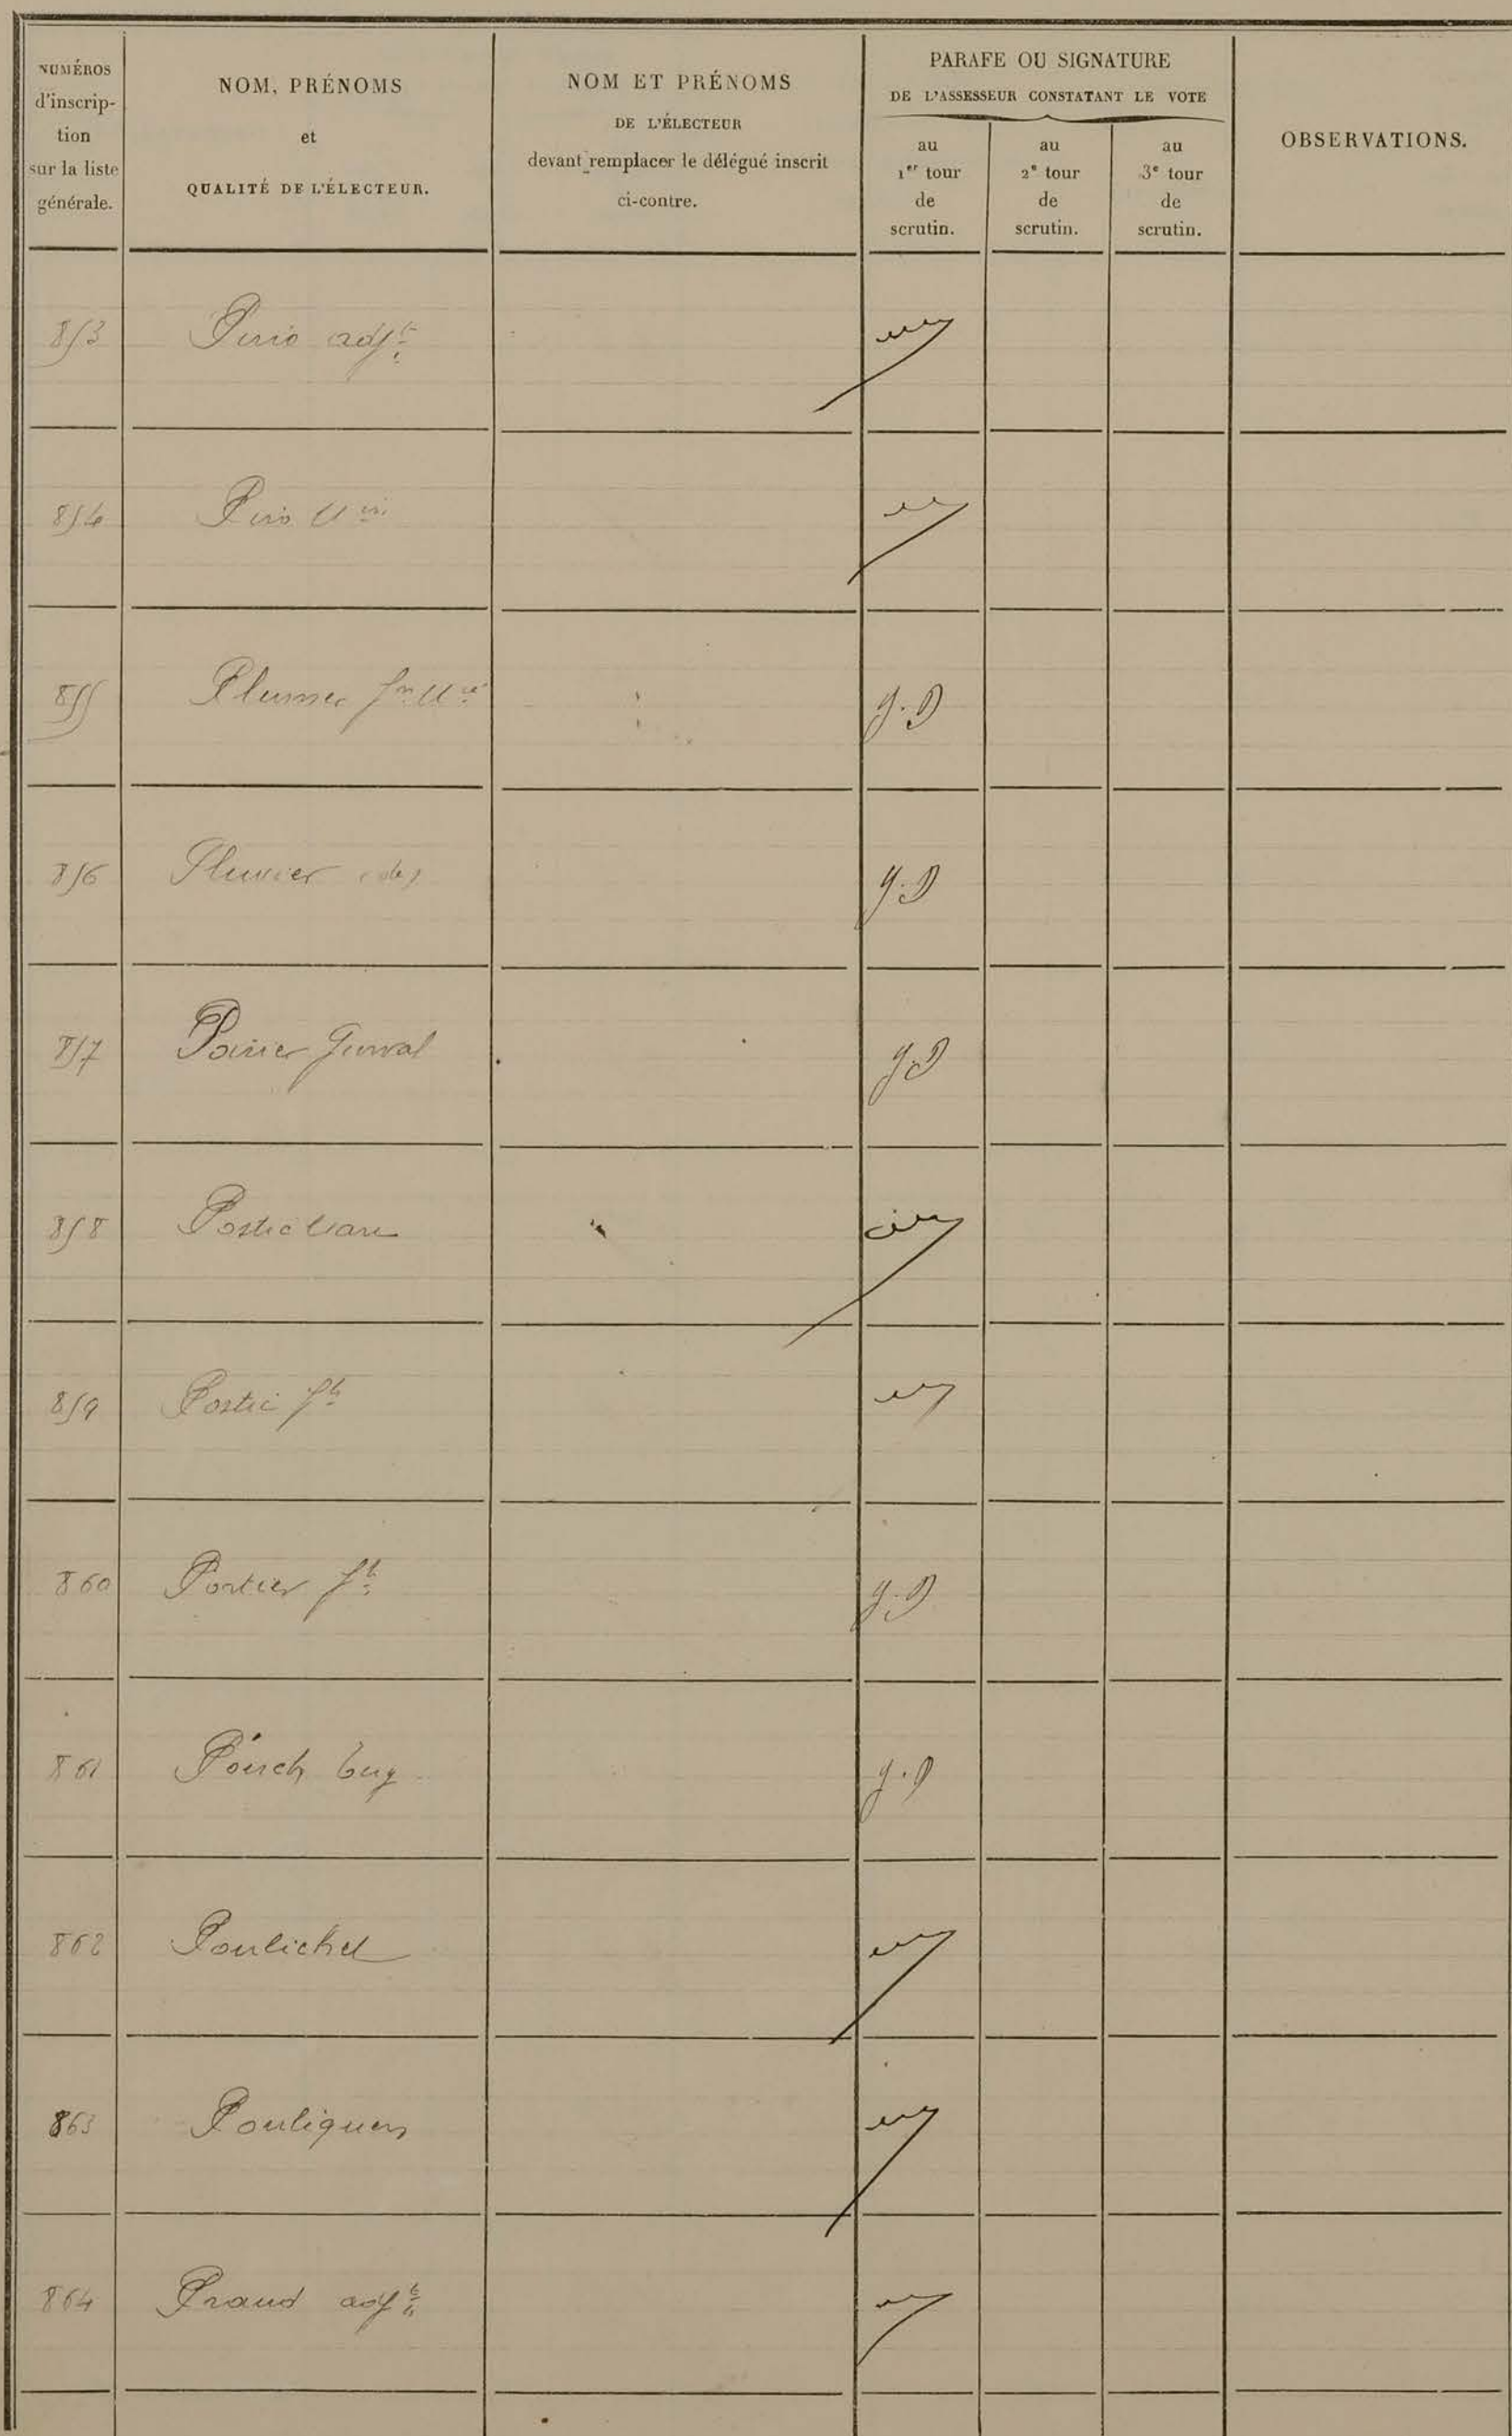 NUMÉROS
d'inscrip-
tion
sur la liste
générale.
NOM, PRÉNOMS
et
QUALITÉ DE L'ÉLECTEUR.
NOM ET PRÉNOMS
DE L'ÉLECTEUR
devant remplacer le délégué inscrit
ci-contre.
PARAFE OU SIGNATURE
DE L'ASSESSEUR CONSTATANT LE VOTE
au
1er tour
de
scrutin.
au
2e tour
de
scrutin.
au
3e tour
de
scrutin.
OBSERVATIONS.
853 adjt
854
855 g.D
856 Pluvier g.D
857 Poirier Gurval g.D
858 Postic
859 Postic
860 Portier g.D
861 g.D
862 Poulichet
863 Pouliquen
864 Praud adjt